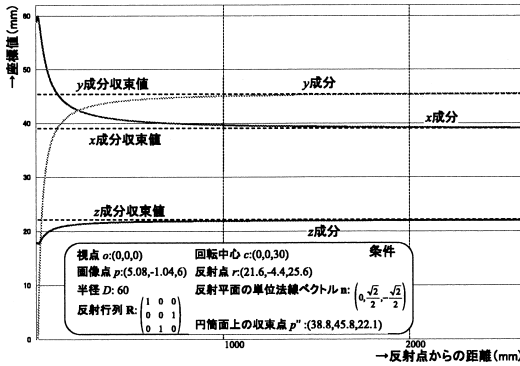 →座標値(mm)
60
50
40
30
20
10
0
y成分収束値
y成分
x成分収束値
x成分
z成分収束値
z成分
条件
視点 o:(0,0,0)
回転中心 c:(0,0,30)
画像点 p:(5.08,-1.04,6)
反射点 r:(21.6,-4.4,25.6)
半径 D: 60
反射平面の単位法線ベクトル n: (0, √2/2, -√2/2)
反射行列 R: (1 0 0
0 0 1
0 1 0)
円筒面上の収束点 p" :(38.8,45.8,22.1)
1000
2000
→反射点からの距離(mm)